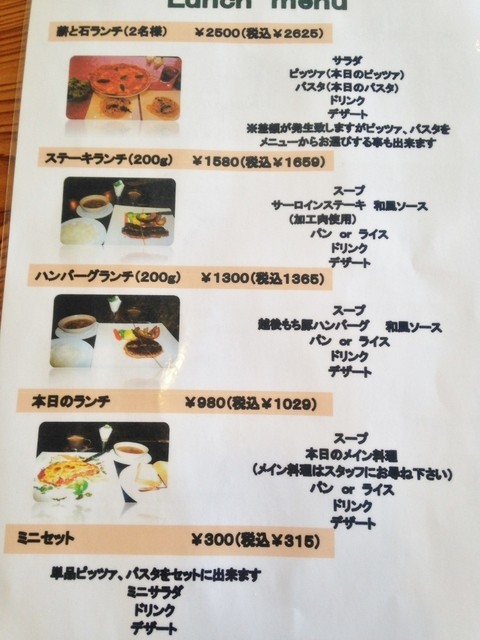 Lunch menu
薪と石ランチ(2名様) ￥2500(税込￥2625)
サラダ
ピッツァ(本日のピッツァ)
パスタ(本日のパスタ)
ドリンク
デザート
※差額が発生致しますがピッツァ、パスタを
メニューからお選びする事も出来ます
ステーキランチ(200g) ￥1580(税込￥1659)
スープ
サーロインステーキ 和風ソース
(加工肉使用)
パン or ライス
ドリンク
デザート
ハンバーグランチ(200g) ￥1300(税込1365)
スープ
越後もち豚ハンバーグ 和風ソース
パン or ライス
ドリンク
デザート
本日のランチ ￥980(税込￥1029)
スープ
本日のメイン料理
(メイン料理はスタッフにお尋ね下さい)
パン or ライス
ドリンク
デザート
ミニセット ￥300(税込￥315)
単品ピッツァ、パスタをセットに出来ます
ミニサラダ
ドリンク
デザート